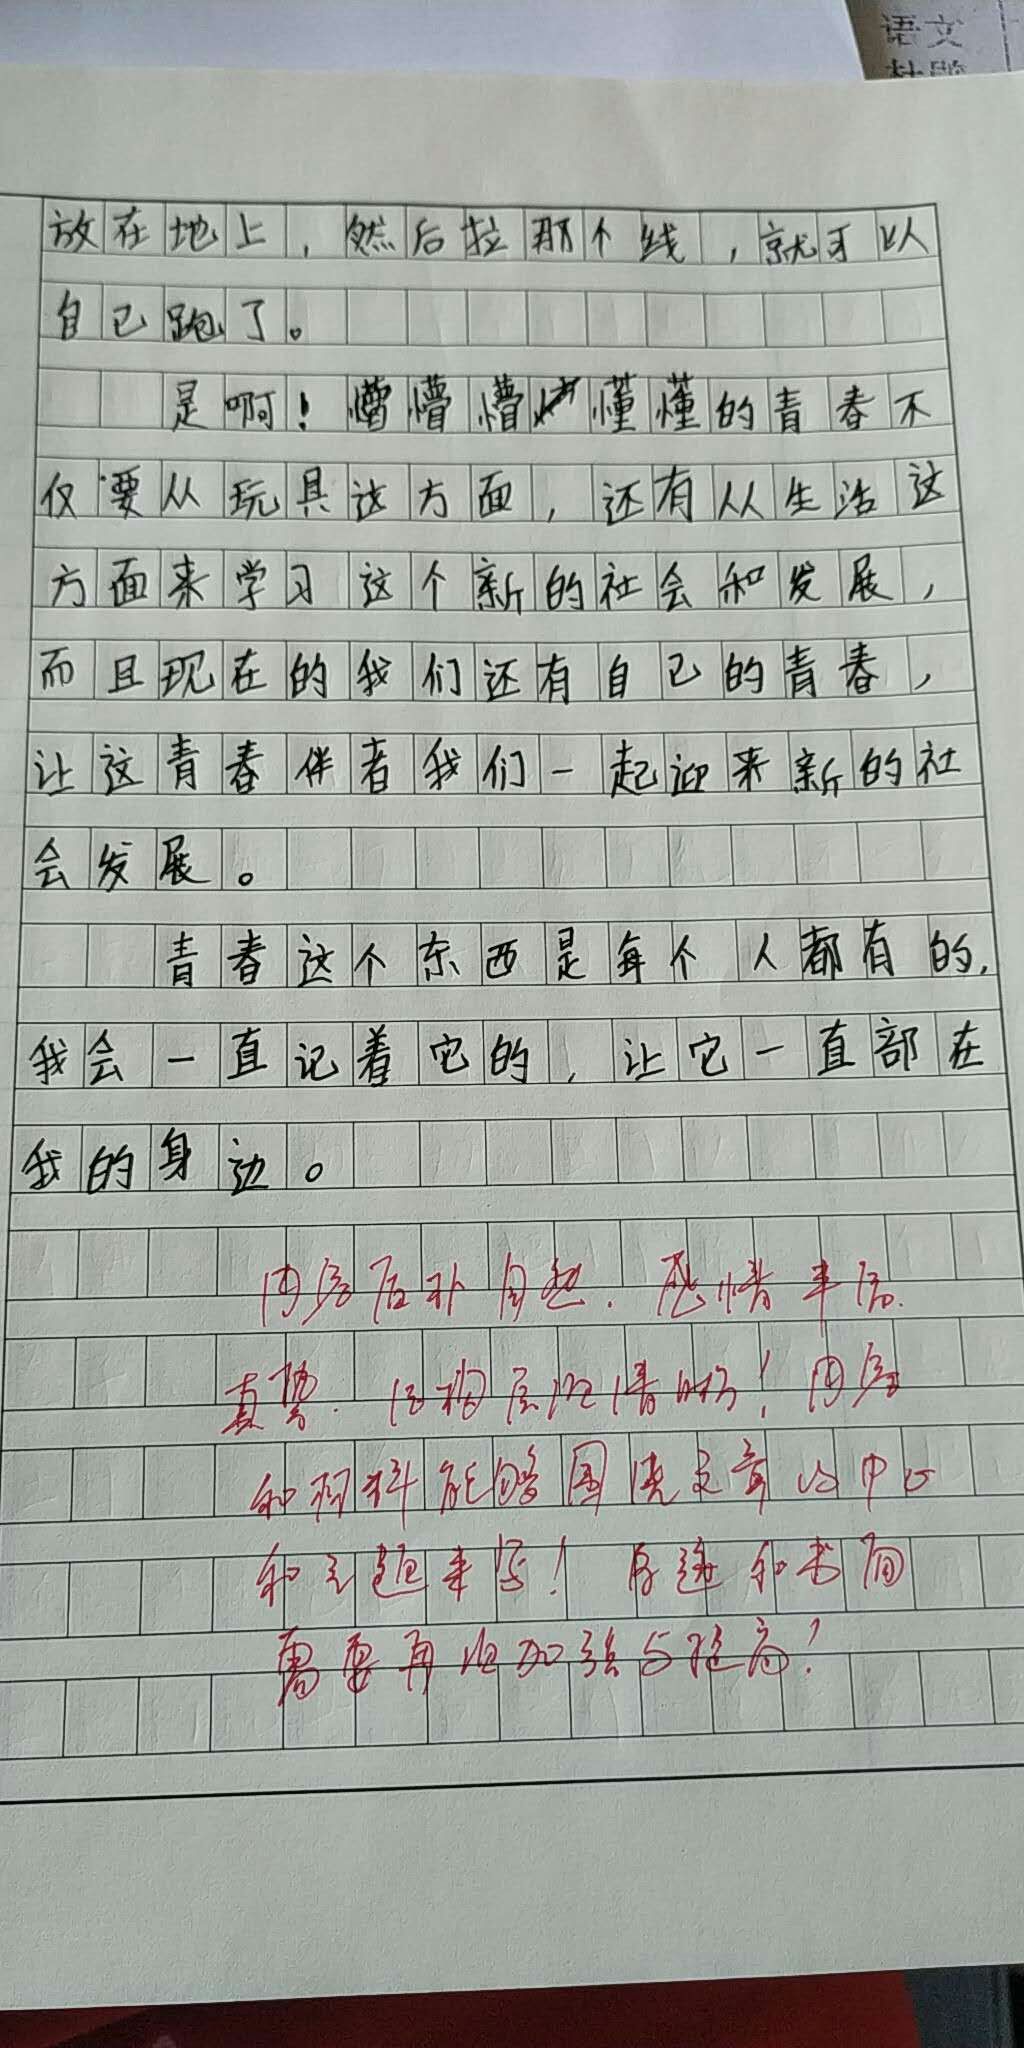 语文
放在地上，然后拉那个线，就可以
自己跑了。
是啊！懵懵懵懂懂的青春不
仅要从玩具这方面，还有从生活这
方面来学习这个新的社会和发展，
而且现在的我们还有自己的青春，
让这青春伴者我们一起迎来新的社
会发展。
青春这个东西是每个人都有的，
我会一直记着它的，让它一直部在
我的身边。
内容 自然．感情丰富．
真挚．结构层次清晰！内容
和材料能够围绕文章的中心
和主题来写！ 和书面
需要再次加强与提高！